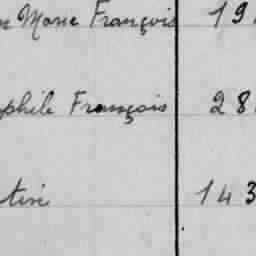 Marie François 19
phile François 28
143